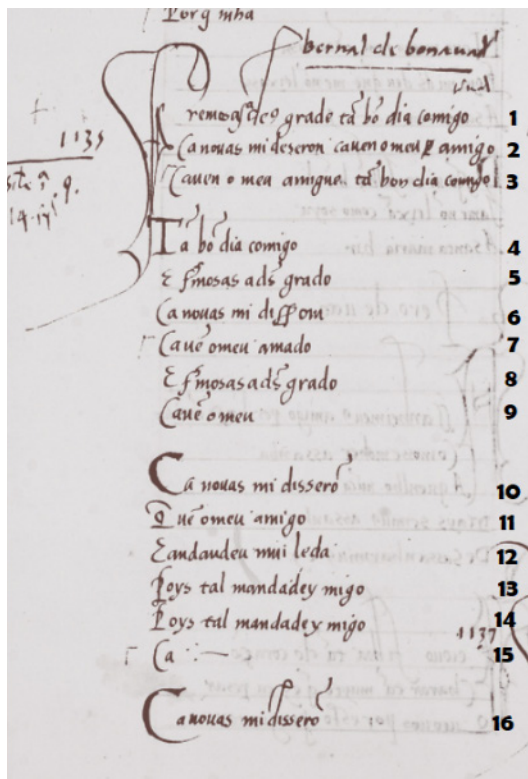 Porq̃ mha
bernal de bonaual
1135
remosas a d̃s grado tã bõ dia comigo 1
Ca nouas mi deseron ca uen o meu amigo 2
Ca uen o meu amigue tã bon dia comigo 3
14
Tã bõ dia comigo 4
E f̃mosas a ds̃ grado 5
Ca nouas mi disserom 6
Ca uẽ o meu amado 7
E f̃mosas a ds̃ grado 8
Ca uẽ o meu 9
Ca nouas mi disserõ 10
Q̃ uẽ o meu amigo 11
E andandeu mui leda 12
Poys tal mandadey migo 13
Poys tal mandadey migo 14
1137
Ca 15
Ca nouas mi disserõ 16